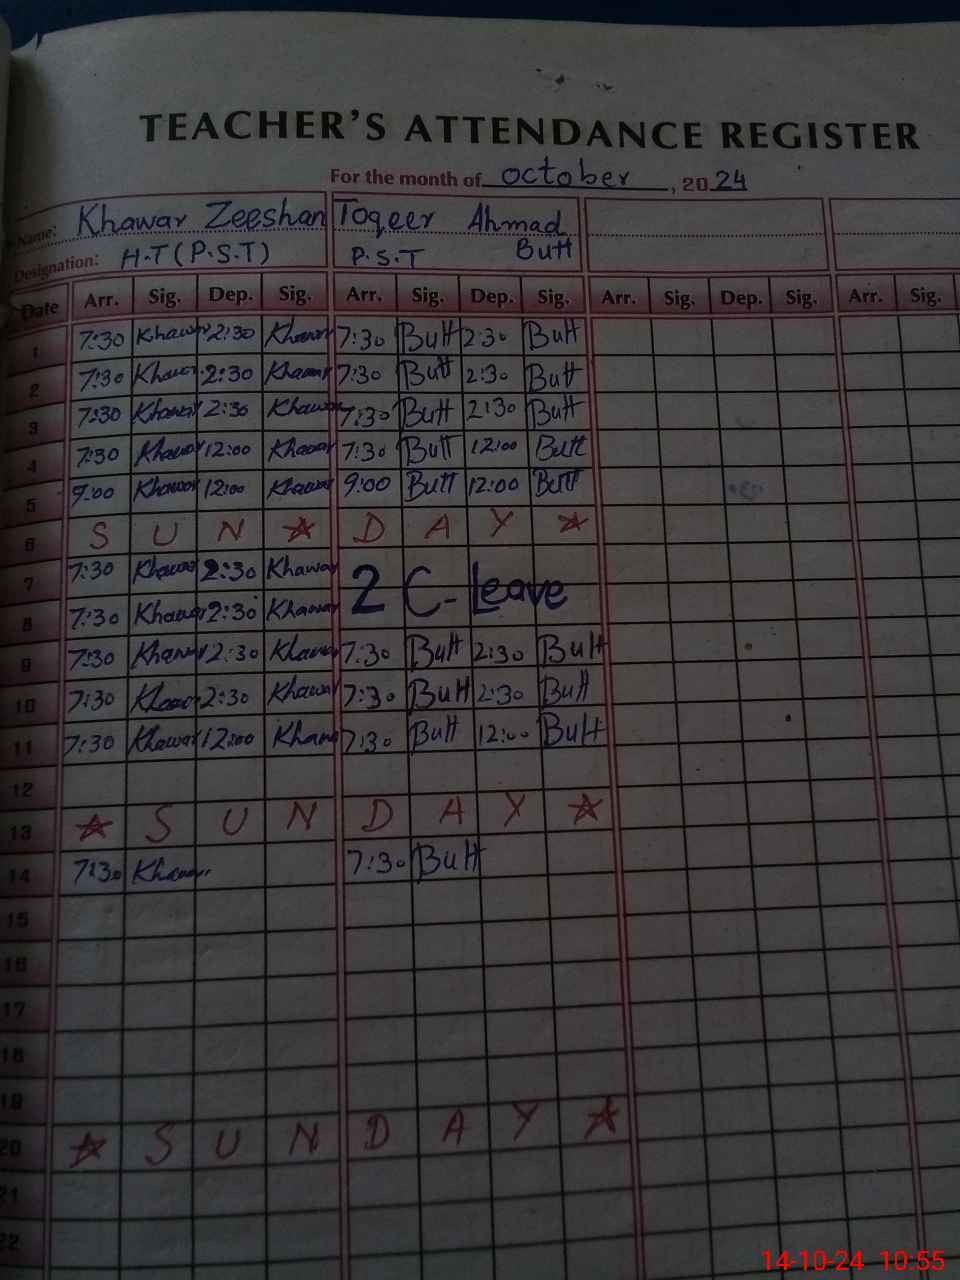 TEACHER'S ATTENDANCE REGISTER
For the month of October, 2024
Name: Khawar Zeeshan Toqeer Ahmad Butt
Designation: H.T (P.S.T) P.S.T
Date Arr. Sig. Dep. Sig. Arr. Sig. Dep. Sig. Arr. Sig. Dep. Sig. Arr. Sig.
1 7:30 Khawar 2:30 Khawar 7:30 Butt 2:30 Butt
2 7:30 Khawar 2:30 Khawar 7:30 Butt 2:30 Butt
3 7:30 Khawar 2:30 Khawar 7:30 Butt 2:30 Butt
4 7:30 Khawar 12:00 Khawar 7:30 Butt 12:00 Butt
5 9:00 Khawar 12:00 Khawar 9:00 Butt 12:00 Butt
6 S U N ☆ D A Y ☆
7 7:30 Khawar 2:30 Khawar 2 C-Leave
8 7:30 Khawar 2:30 Khawar
9 7:30 Khawar 2:30 Khawar 7:30 Butt 2:30 Butt
10 7:30 Khawar 2:30 Khawar 7:30 Butt 2:30 Butt
11 7:30 Khawar 12:00 Khawar 7:30 Butt 12:00 Butt
12
13 ☆ S U N D A Y ☆
14 7:30 Khawar 7:30 Butt
15
16
17
18
19
20 ☆ S U N D A Y ☆
21
22
14-10-24 10:55